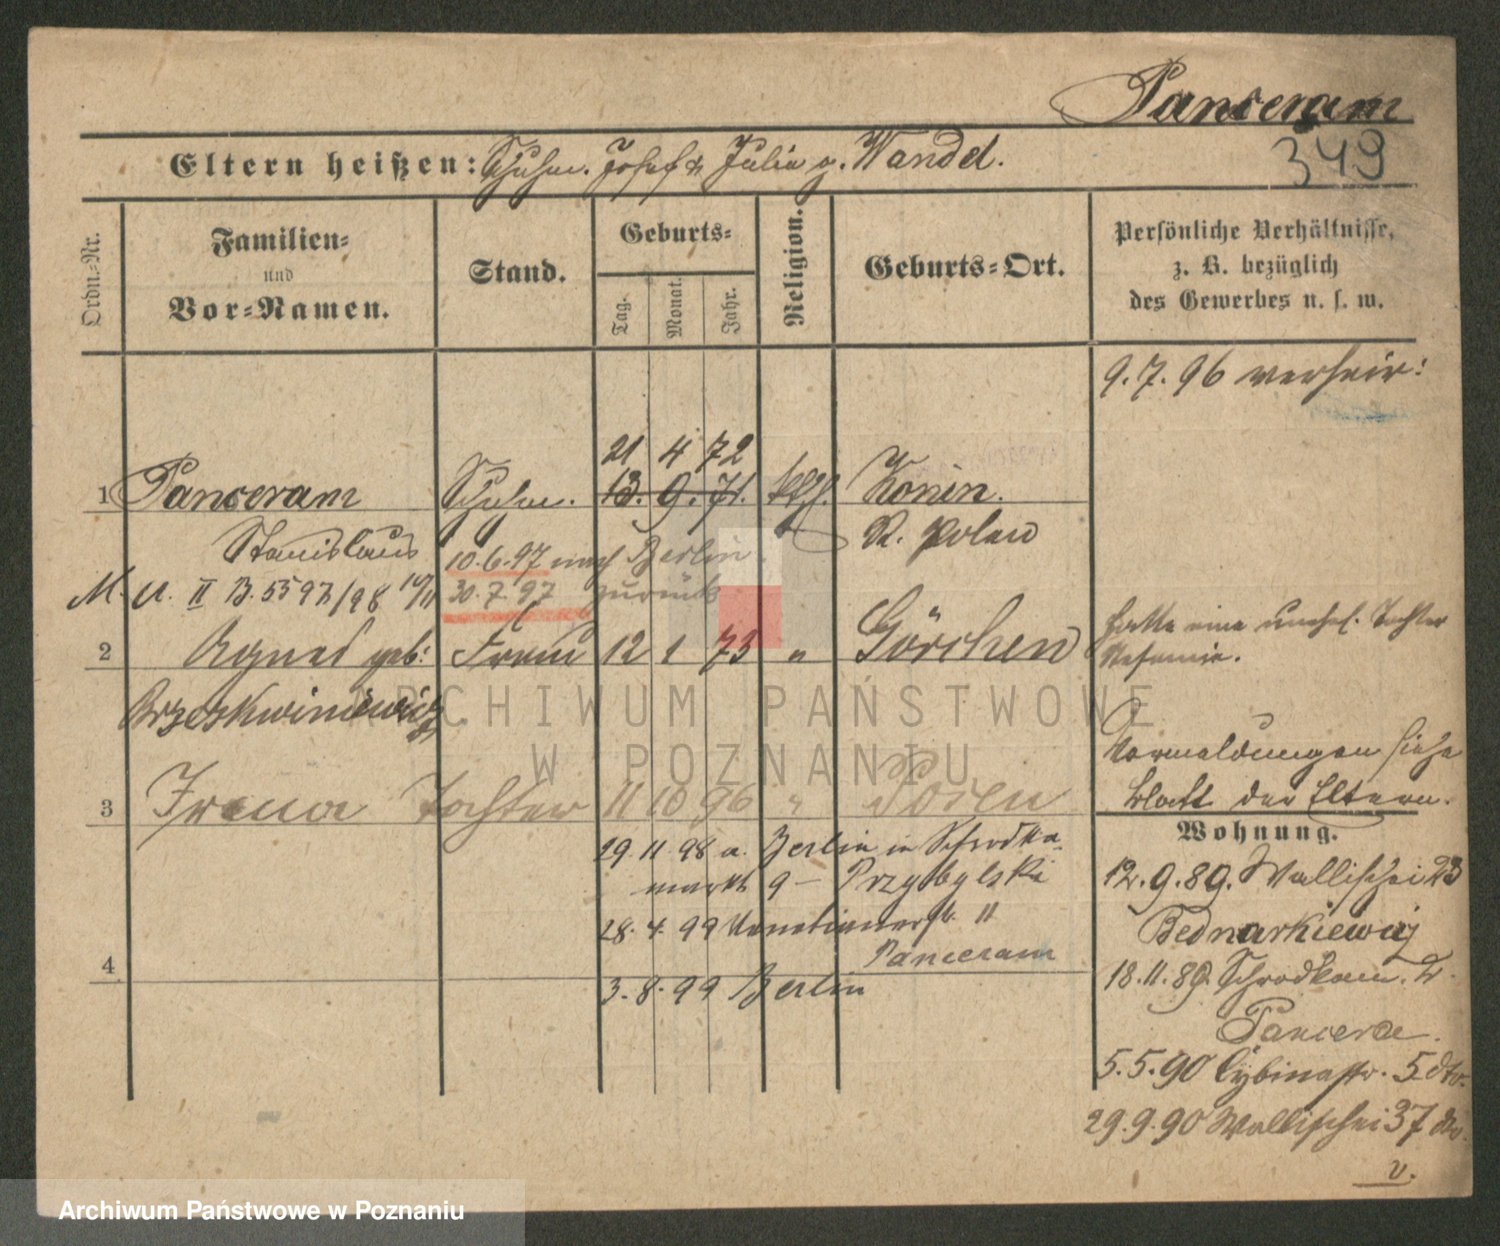 Panceram
349
Eltern heißen: Schuhm. Josef u Julia g. Wandel.
Ordn.-Nr.
Familien- und Vor-Namen.
Stand.
Geburts-
Tag. Monat. Jahr.
Religion.
Geburts-Ort.
Persönliche Verhältnisse,
z. B. bezüglich
des Gewerbes u. s. w.
9. 7. 96 verheir:
21 4 72
1 Panceram Schuhm. 13. 9. 71. kth. Konin.
Stanislaus R. Polen
10. 6. 97 nach Berlin.
M. U. II B. 5597/98 30. 7. 97 zurück
2 Agnes geb: Frau 12 1 73 " Görchen
Brzeskwiniewicz
Hatte eine unehel. Tochter
3 Irena Tochter 11 10 96 " Posen
Vormeldungen siehe
Blatt der Eltern.
29. 11. 98 a. Berlin in Schrodka-
markt 9 – Przybylski
28. 4. 99 Venetianerstr. 11
Panceram
4
3. 8. 99 Berlin
Wohnung.
12. 9. 89. Wallischei 23
Bednarkiewicz
18. 11. 89. Schrodkam. 2.
5. 5. 90 Cybinastr. 5 dto.
29. 9. 90 Wallischei 37 do.
v.
ARCHIWUM PAŃSTWOWE
W POZNANIU
Archiwum Państwowe w Poznaniu